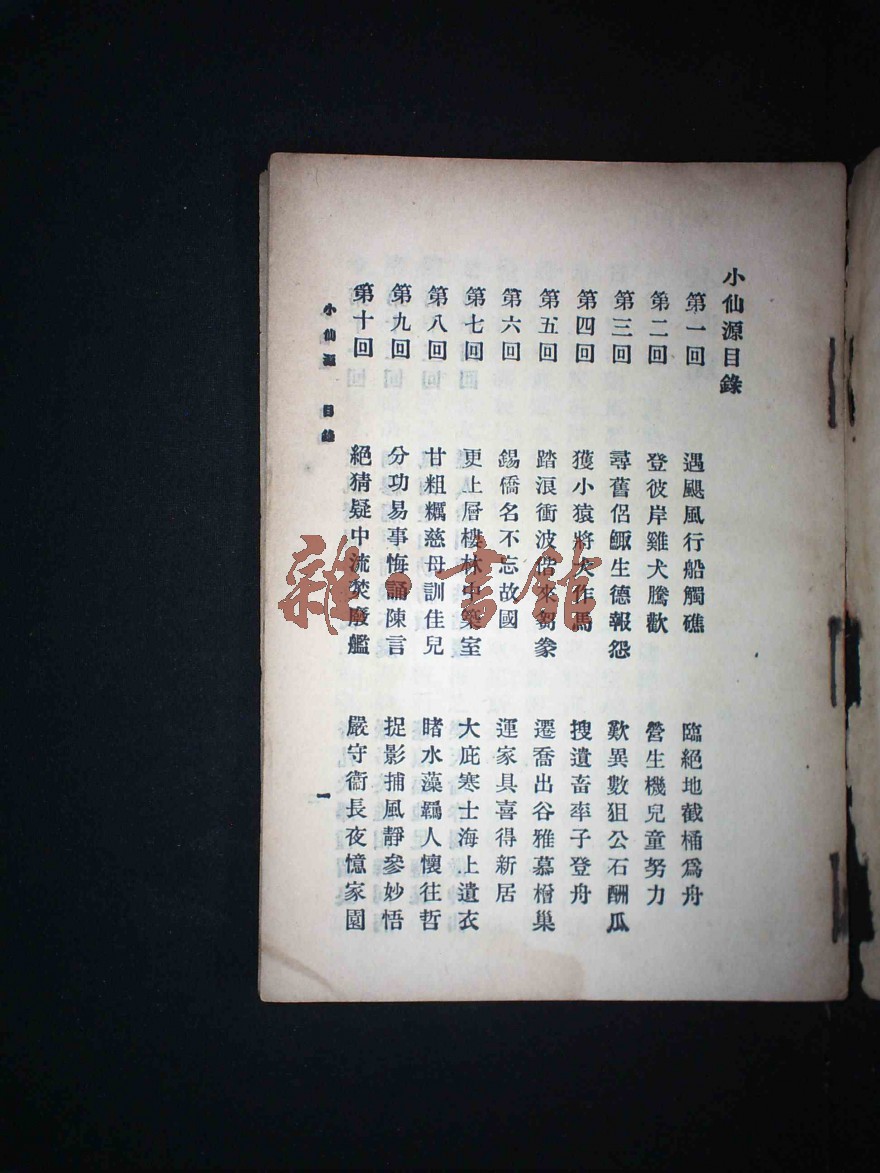 小仙源目錄
第一回 遇颶風行船觸礁 臨絕地截桶爲舟
第二回 登彼岸雞犬騰歡 營生機兒童努力
第三回 尋舊侶鯫生德報怨 歎異數狙公石酬瓜
第四回 獲小猿將犬作馬 搜遺畜率子登舟
第五回 踏浪衝波偕來芻豢 遷喬出谷雅慕檜巢
第六回 錫僑名不忘故國 運家具喜得新居
第七回 更上層樓林中築室 大庇寒士海上遺衣
第八回 甘粗糲慈母訓佳兒 睹水藻羈人懷往哲
第九回 分功易事悔誦陳言 捉影捕風靜參妙悟
第十回 絕猜疑中流焚廢艦 嚴守衞長夜憶家園
小仙源 目錄 一
雜·書館